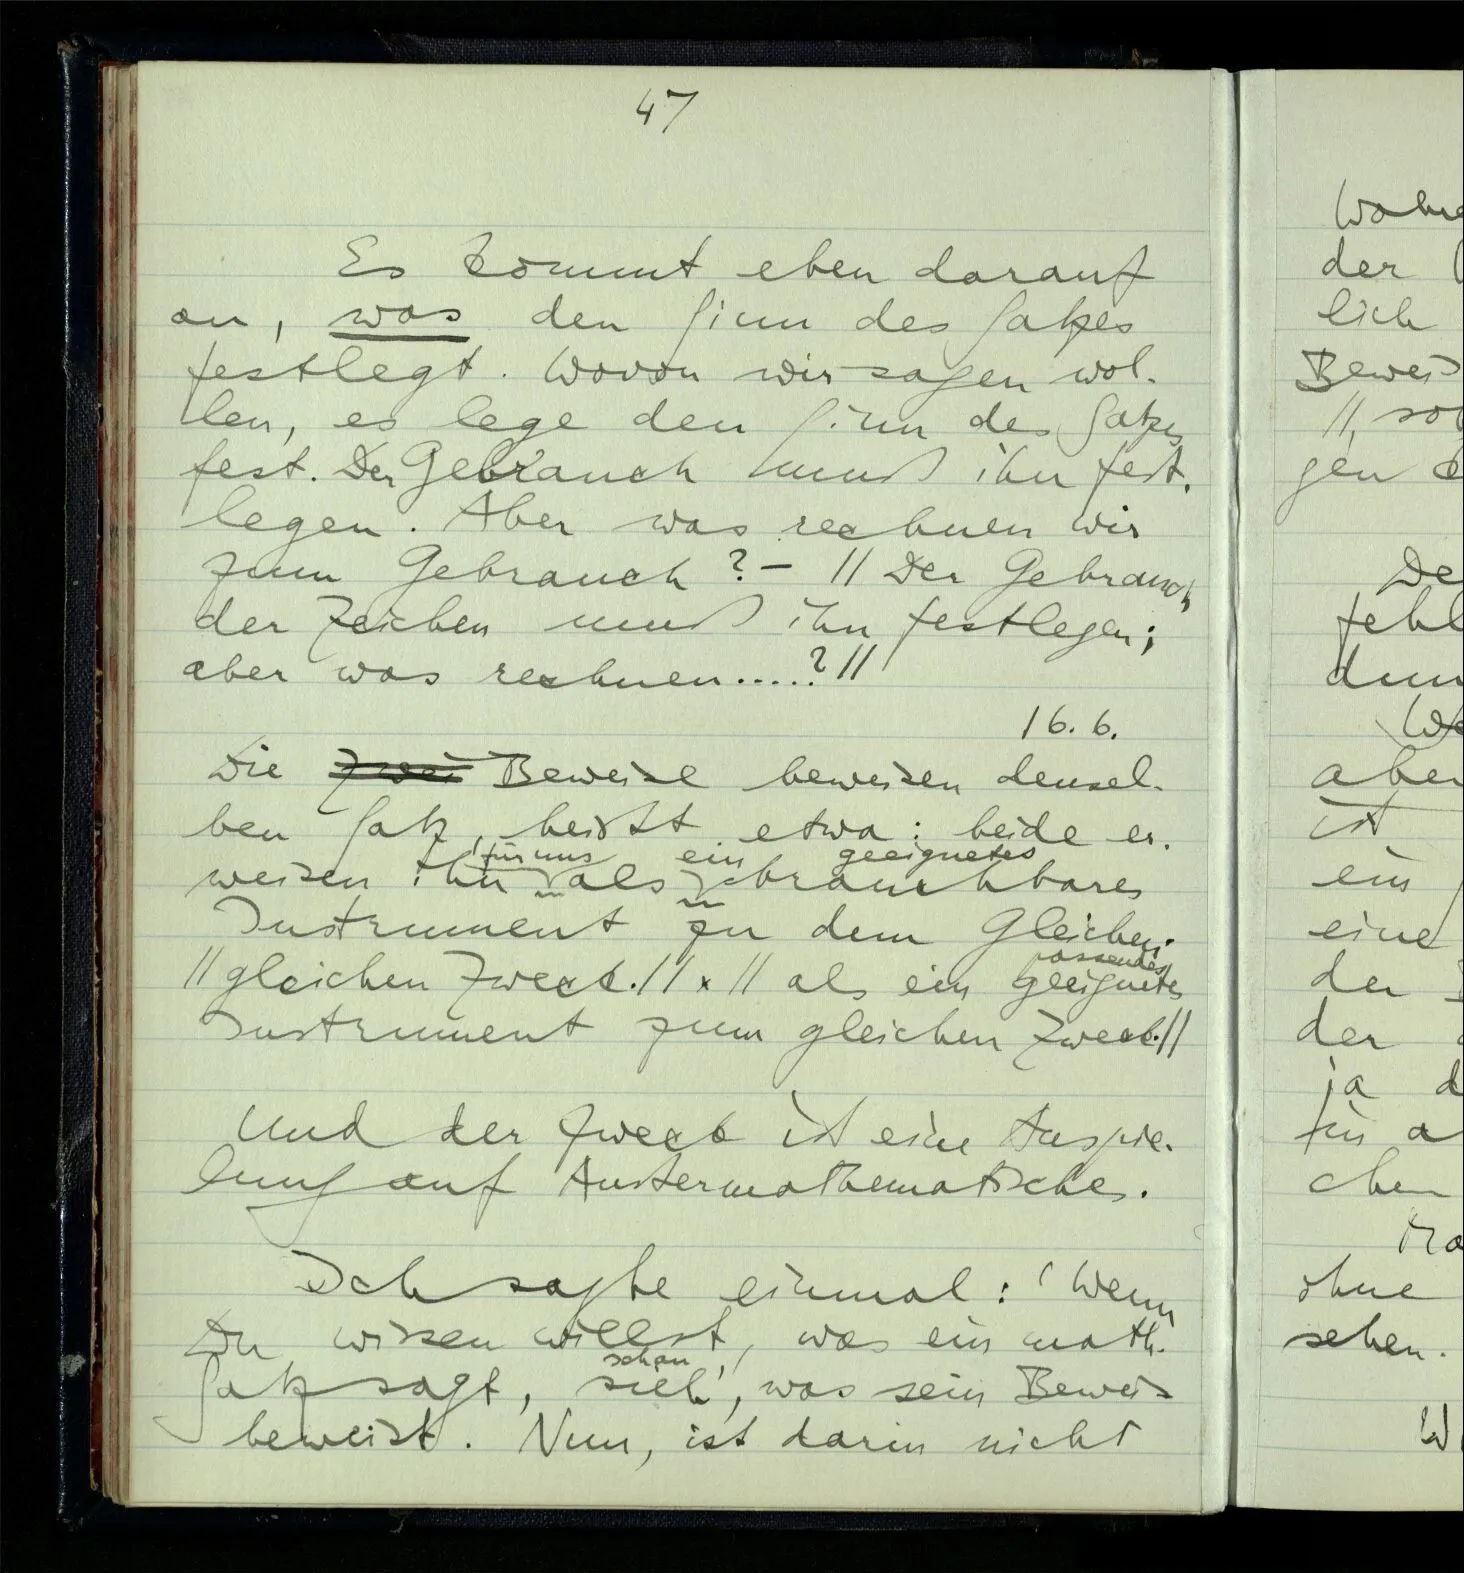 47
Es kommt eben darauf
an, was den Sinn des Satzes
festlegt. Wovon wir sagen wol-
len, es lege den Sinn des Satzes
fest. Der Gebrauch muß ihn fest-
legen. Aber was rechnen wir
zum Gebrauch? – || Der Gebrauch
der Zeichen muß ihn festlegen;
aber was rechnen.....? ||
16. 6.
Die zwei Beweise beweisen densel-
ben Satz, heißt etwa: beide er-
für uns ein geeignetes
weisen ihn als brauchbares
Instrument zu dem Gleichen.
passendes
|| gleichen Zweck. || x || als ein geeignetes
Instrument zum gleichen Zweck. ||
Und der Zweck ist eine Anspie-
lung auf Außermathematisches.
Ich sagte einmal: 'Wenn
Du wissen willst, was ein math.
schau
Satz sagt, sieh', was sein Beweis
beweist. Nun, ist darin nicht
der
lich
Beweis
gen
aber
ist
ein
eine
der
der
ja d
für a
chen
ohne
sehen.